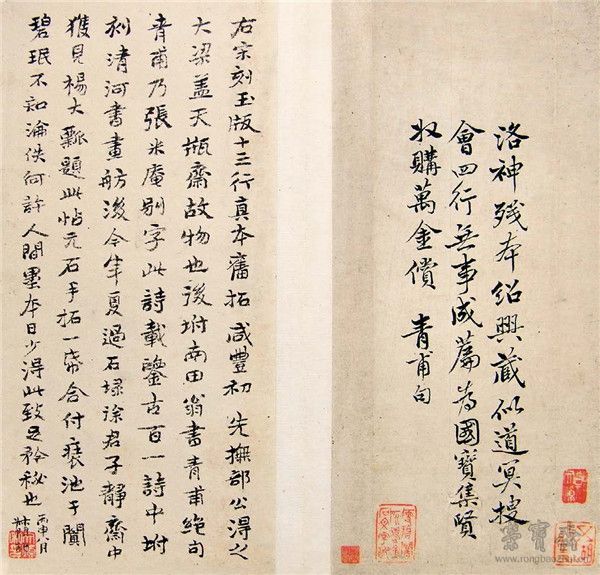 洛神残本紹興藏似道冥搜
會四行無事成篇為國寶集賢
收購萬金償 青甫句
右宋刻玉版十三行真本舊拓咸豐初先撫部公得之
大梁蓋天瓶齋故物也後坿南田翁書青甫絕句
青甫乃張米庵別字此詩載鑒古百一詩中坿
刻清河書畫舫後今年夏過石埭徐君子靜齋中
獲見楊大瓢題此帖元石手拓一帋合付裝池于闐
碧珉不知淪佚何許人間墨本日少得此致足矜祕也 丙申八月
榮寶齋
www.rongbaozhai.cn